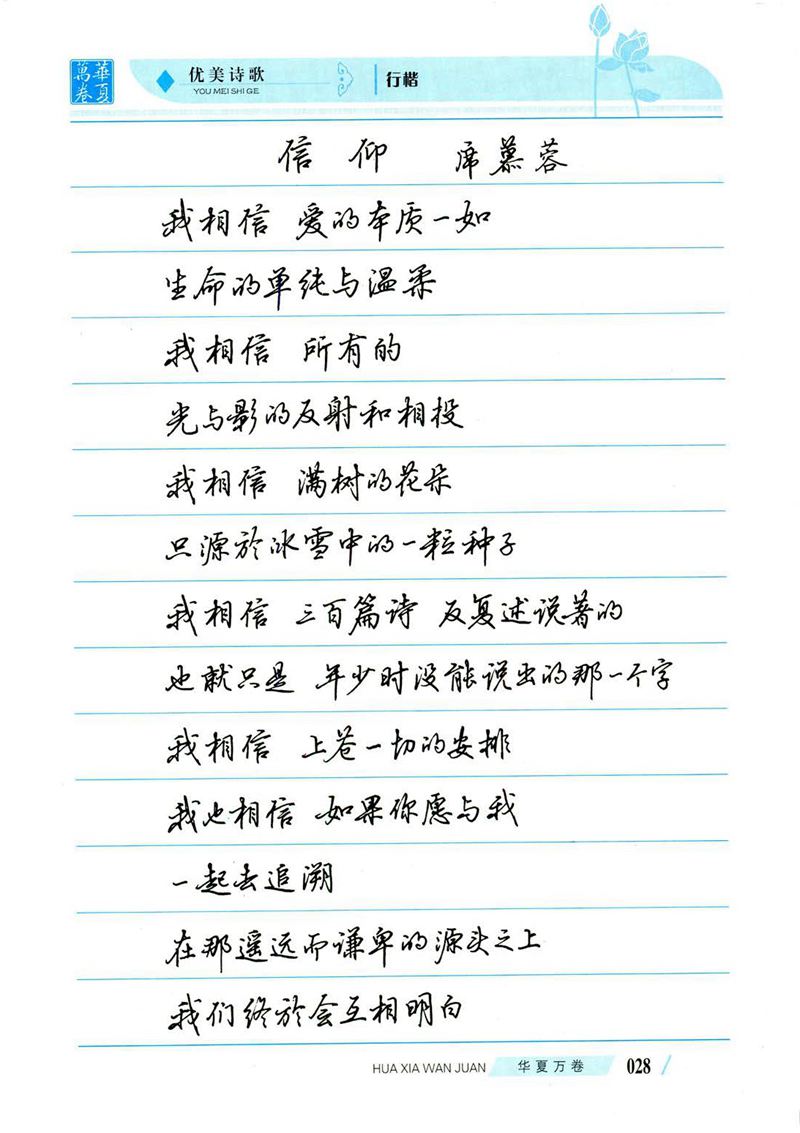 華夏萬卷
优美诗歌
YOU MEI SHI GE
行楷
信 仰 席慕蓉
我相信 爱的本质一如
生命的单纯与温柔
我相信 所有的
光与影的反射和相投
我相信 满树的花朵
只源於冰雪中的一粒种子
我相信 三百篇诗 反复述说著的
也就只是 年少时没能说出的那一个字
我相信 上苍一切的安排
我也相信 如果你愿与我
一起去追溯
在那遥远而谦卑的源头之上
我们终於会互相明白
HUA XIA WAN JUAN 华夏万卷 028